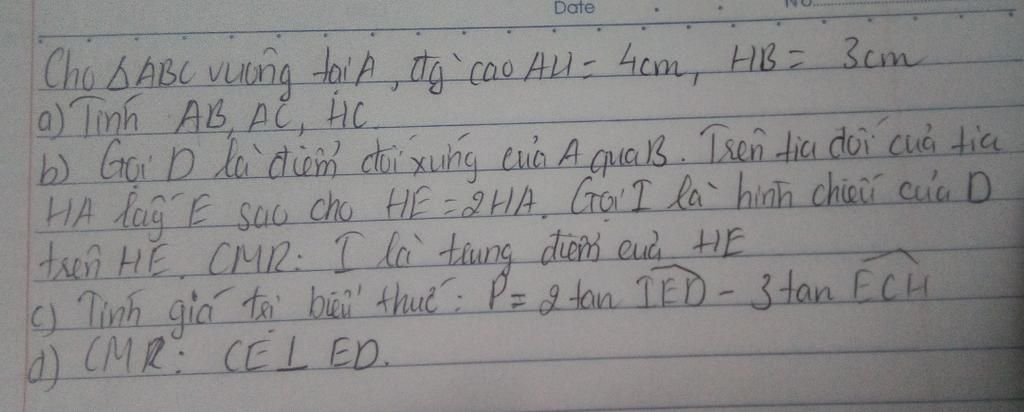 Date No.
Cho ΔABC vuông tại A, đg cao AH = 4cm, HB = 3cm
a) Tính AB, AC, HC
b) Gọi D là điểm đối xứng của A qua B. Trên tia đối của tia
HA lấy E sao cho HE = 2HA. Gọi I là hình chiếu của D
trên HE. CMR: I là trung điểm của HE
c) Tính giá trị biểu thức: P = 2 tan IED - 3 tan ECH
d) CMR: CE ⊥ ED.